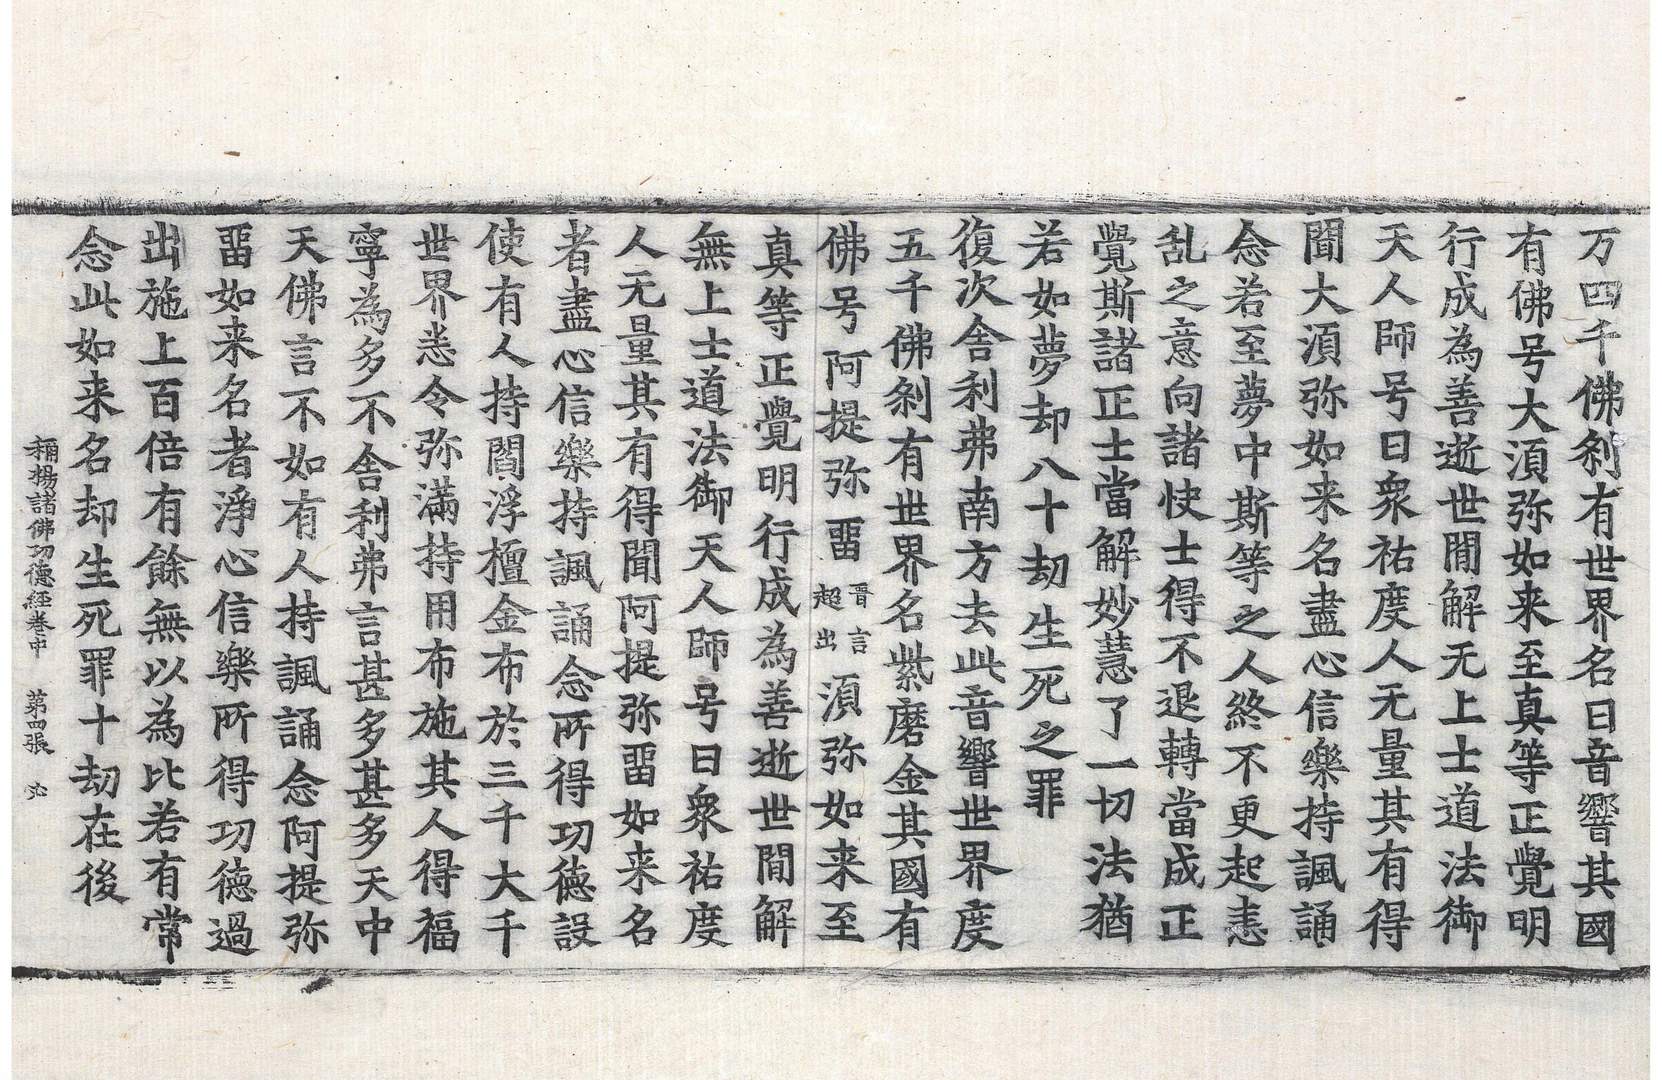 万四千佛刹有世界名曰音響其國
有佛号大湏弥如来至真等正覺明
行成為善逝世間解无上士道法御
天人師号曰衆祐度人无量其有得
聞大湏弥如来名盡心信樂持諷誦
念若至夢中斯等之人終不更起恚
乱之意向諸快士得不退轉當成正
覺斯諸正士當解妙慧了一切法猶
若如夢却八十劫生死之罪
復次舍利弗南方去此音響世界度
五千佛刹有世界名紫磨金其國有
佛号阿提弥畱晋言超出湏弥如来至
真等正覺明行成為善逝世間解
無上士道法御天人師号曰衆祐度
人无量其有得聞阿提弥畱如来名
者盡心信樂持諷誦念所得功德設
使有人持閻浮檀金布於三千大千
世界悉令弥滿持用布施其人得福
寧為多不舍利弗言甚多甚多天中
天佛言不如有人持諷誦念阿提弥
畱如来名者淨心信樂所得功德過
出施上百倍有餘無以為比若有常
念此如来名却生死罪十劫在後
稱揚諸佛功德経卷中 第四張